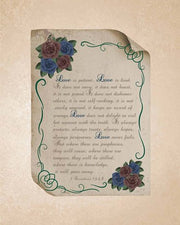 Love is patient, Love is kind.
It does not envy, it does not boast,
it is not proud. It does not dishonor
others, it is not self-seeking, it is not
easily angered, it keeps no record of
wrongs. Love does not delight in evil
but rejoices with the truth. It always
protects, always trusts, always hopes,
always perseveres. Love never fails.
But where there are prophecies,
they will cease; where there are
tongues, they will be stilled;
where there is knowledge,
it will pass away.
1 Corinthians 13:4-8